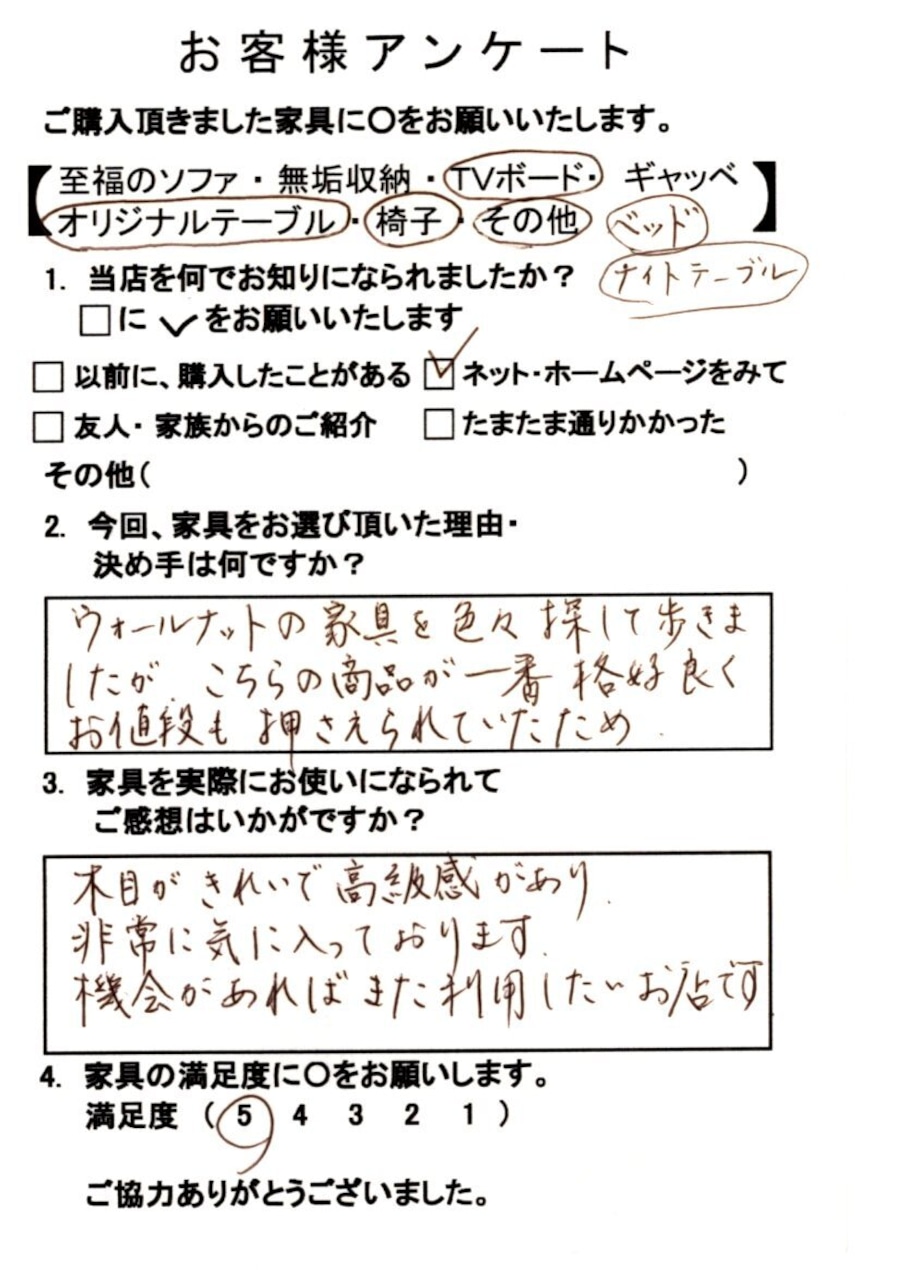 お客様アンケート
ご購入頂きました家具に〇をお願いいたします。
【至福のソファ・無垢収納・TVボード・ ギャッベ
オリジナルテーブル・椅子・その他 ベッド】
ナイトテーブル
1. 当店を何でお知りになられましたか?
□に✓をお願いいたします
□以前に、購入したことがある ☑ネット・ホームページをみて
□友人・家族からのご紹介 □たまたま通りかかった
その他( )
2. 今回、家具をお選び頂いた理由・
決め手は何ですか?
ウォールナットの家具を色々探して歩きま
したが、こちらの商品が一番格好良く
お値段も押さえられていたため.
3. 家具を実際にお使いになられて
ご感想はいかがですか?
木目がきれいで高級感があり.
非常に気に入っております.
機会があればまた利用したいお店です
4. 家具の満足度に〇をお願いします。
満足度 ( 5 4 3 2 1 )
ご協力ありがとうございました。